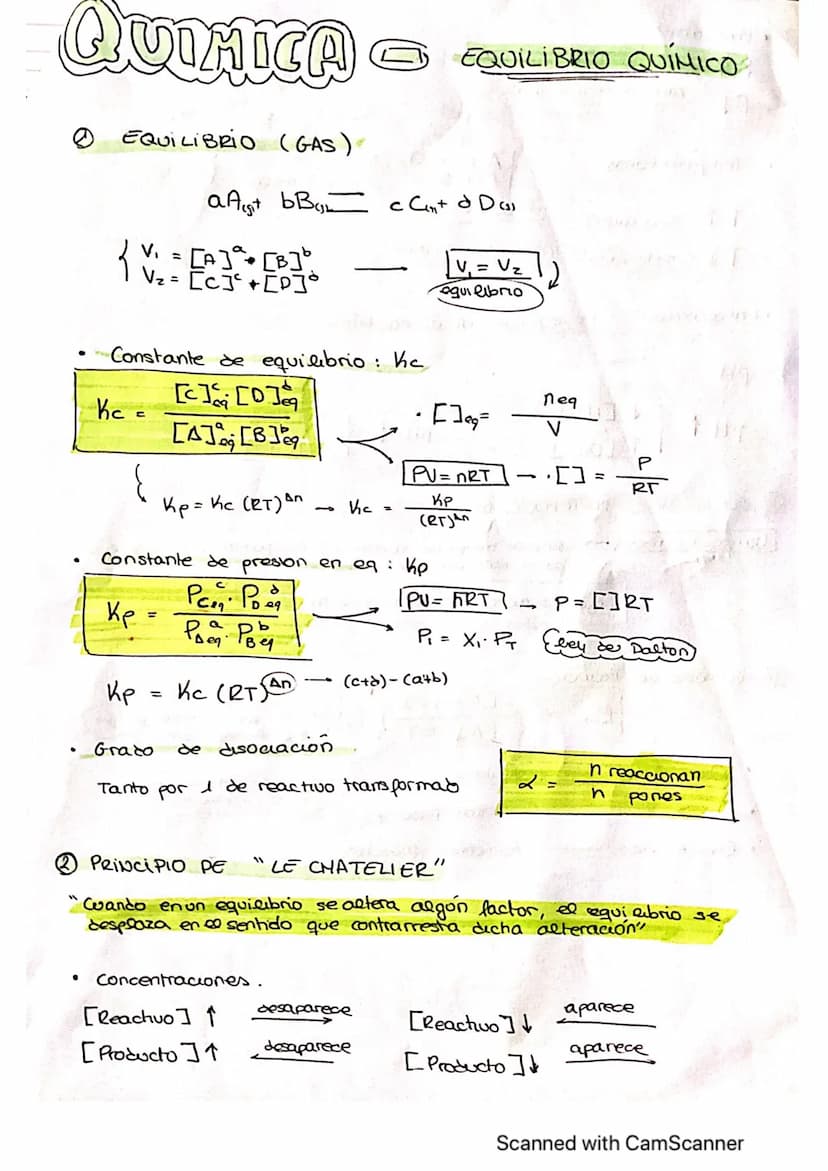 QUIMICA
EQUILIBRIO QUÍMICO
① EQUILIBRIO (GAS)
aA(g)+ bB(g) ⇌ c C(g)+ d D(g)
V₁ = [A]ᵃ • [B]ᵇ
V₂ = [C]ᶜ + [D]ᵈ
V₁ = V₂
equilibrio
• Constante de equilibrio : Kc
Kc = [C]ᶜeq; [D]ᵈeq / [A]ᵃeq; [B]ᵇeq
• []eq = neq / V
PV = nRT → • [] = P / RT
Kp = Kc (RT)^Δn → Kc = Kp / (RT)^Δn
• Constante de presion en eq : Kp
Kp = PCeqᶜ • PDeqᵈ / PAeqᵃ • PBeqᵇ
PV = nRT → P = []RT
Pi = Xi • PT Ley de Dalton
Kp = Kc (RT)^Δn → (c+d)-(a+b)
• Grado de disociación
Tanto por 1 de reactivo transformado
α = n reaccionan / n pones
② PRINCIPIO DE "LE CHATELIER"
"Cuando en un equilibrio se altera algún factor, el equilibrio se
desplaza en el sentido que contrarresta dicha alteración"
• Concentraciones.
[Reactivo] ↑ desaparece →
[Producto] ↑ desaparece ←
[Reactivo] ↓ aparece ←
[Producto] ↓ aparece →
Scanned with CamScanner